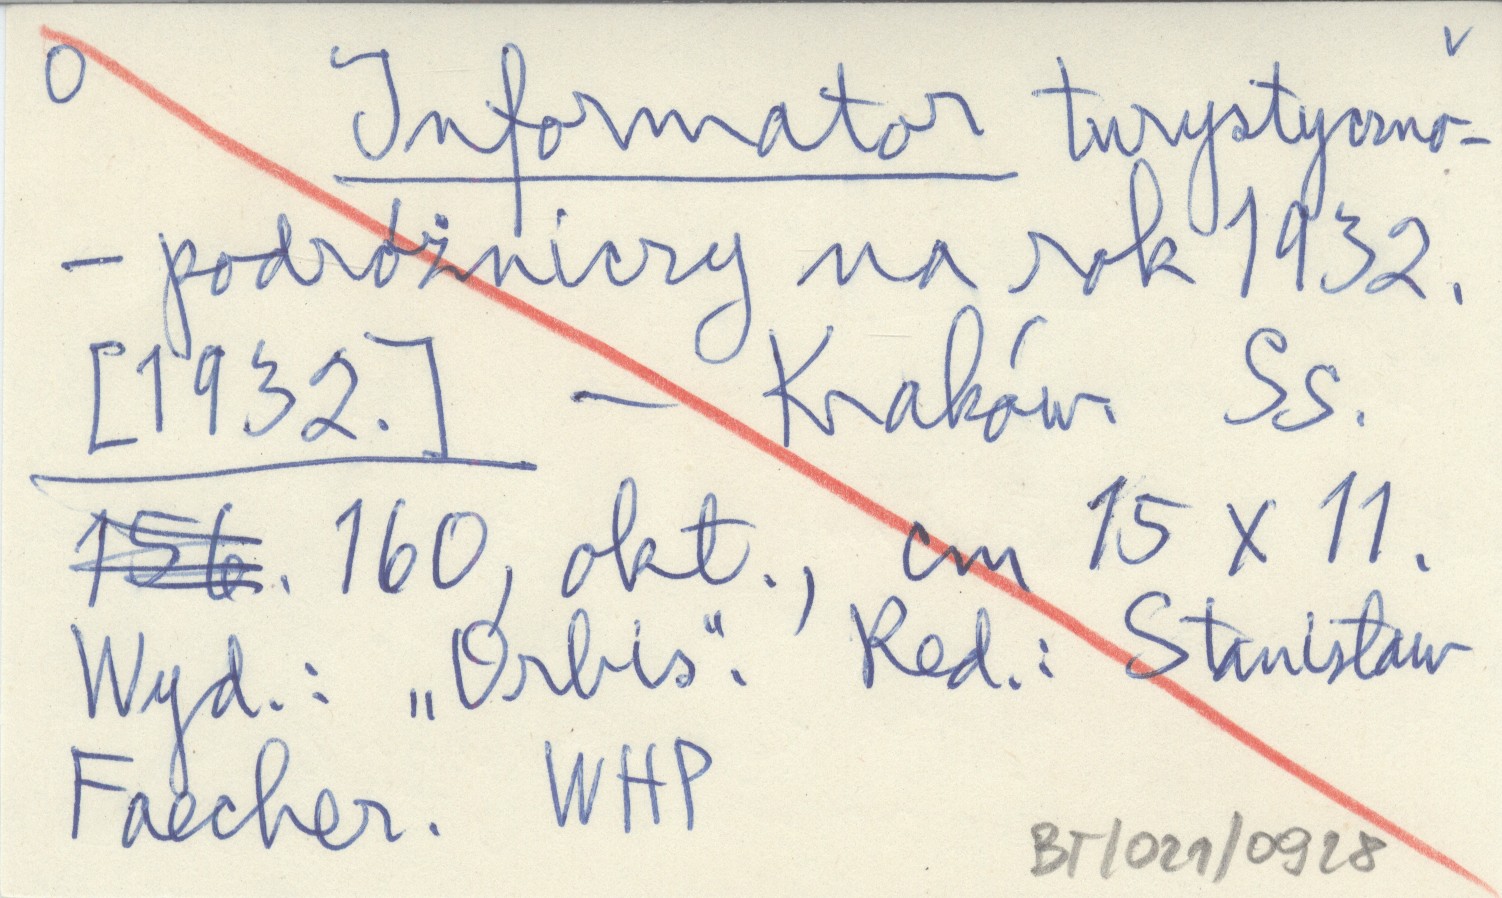 O v
Informator turystyczno-
- podróżniczy na rok 1932.
[1932.] - Kraków. Ss.
156. 160, okt., cm 15 x 11.
Wyd.: „Orbis". Red.: Stanisław
Faecher. WHP
BT/021/0928